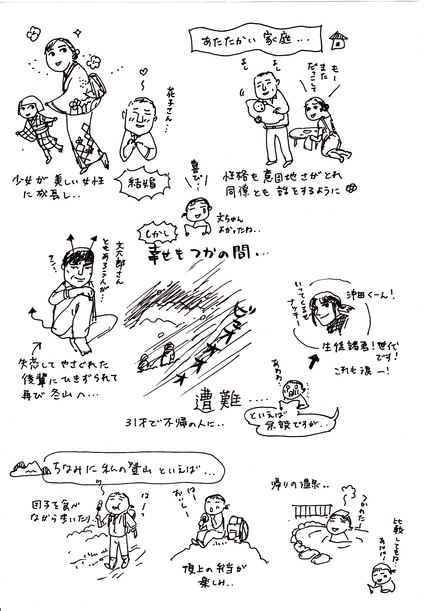 花子さん…
少女が美しい女性
に成長し..
結婚
あたたかい家庭…
よし
よし
もー
また
だっこして
性格も意固地さがとれ
同僚とも話をするように
喜び!
文ちゃん
よかったね..
しかし
幸せもつかの間…
文太郎さん
ともあろう人が…
失恋してやさぐれた
後輩にひきずられて
再び冬山へ…
ビュオオオオ
遭難….
31才で不帰の人に..
いってくるぜ
ナッキー
沖田くーん!
生徒諸君!世代
です!
これも涙ー!
あわわ
といえば
余談ですが..
ちなみに私の登山といえば…
団子を食べ
ながら歩いたり
はーっ
おいしー
頂上の弁当が
楽しみ..
帰りの温泉..
比較
してもね..